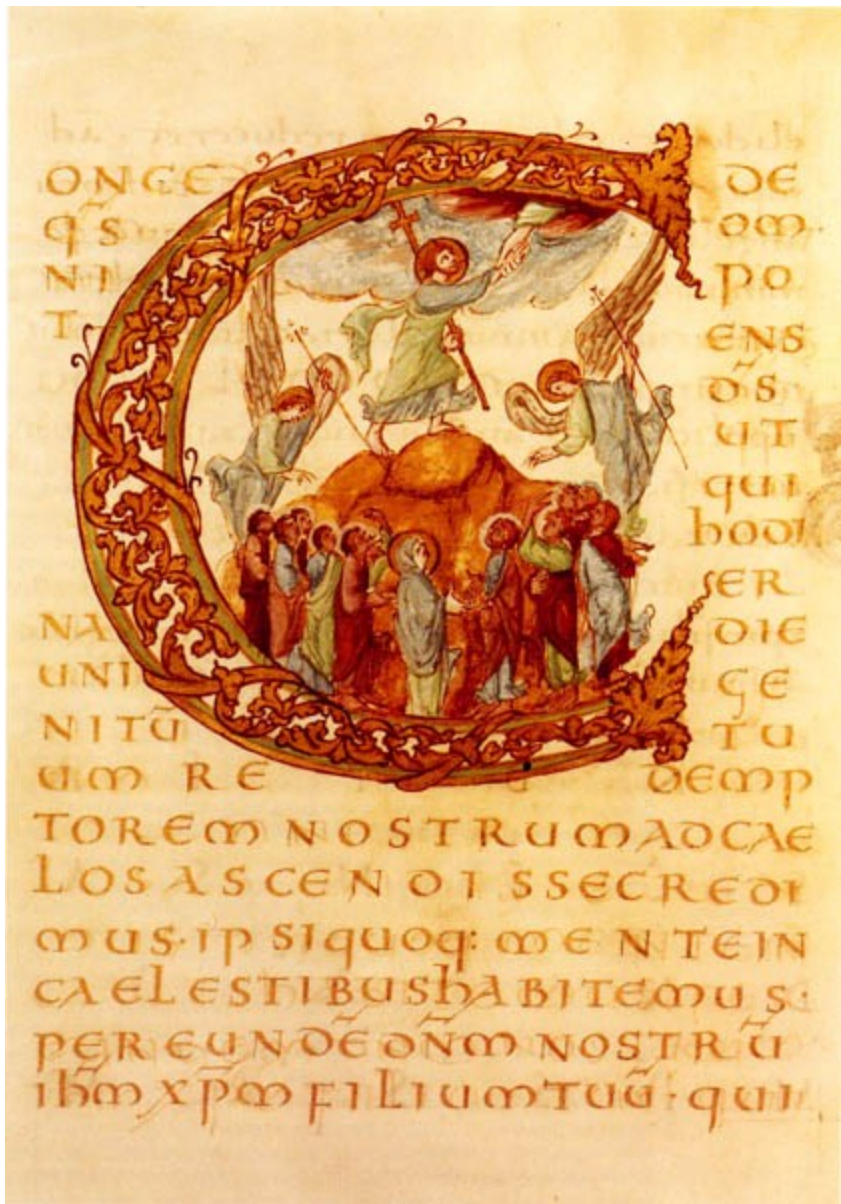 CONCE DE
q̄s om
NI PO
T ENS
d̄s
UT
qui
hodi
ER
NA DIE
UNI GE
NITŪ TU
UM RE DEMP
TOREM NOSTRUM AD CAE
LOS ASCENDISSE CREDI
MUS· IPSI quoq: MENTE IN
CAELESTIBUS hABITEMUS·
PER EUNDĒ DN̄M NOSTRŪ
ih̄m xp̄m FILIUM TUŪ· qui